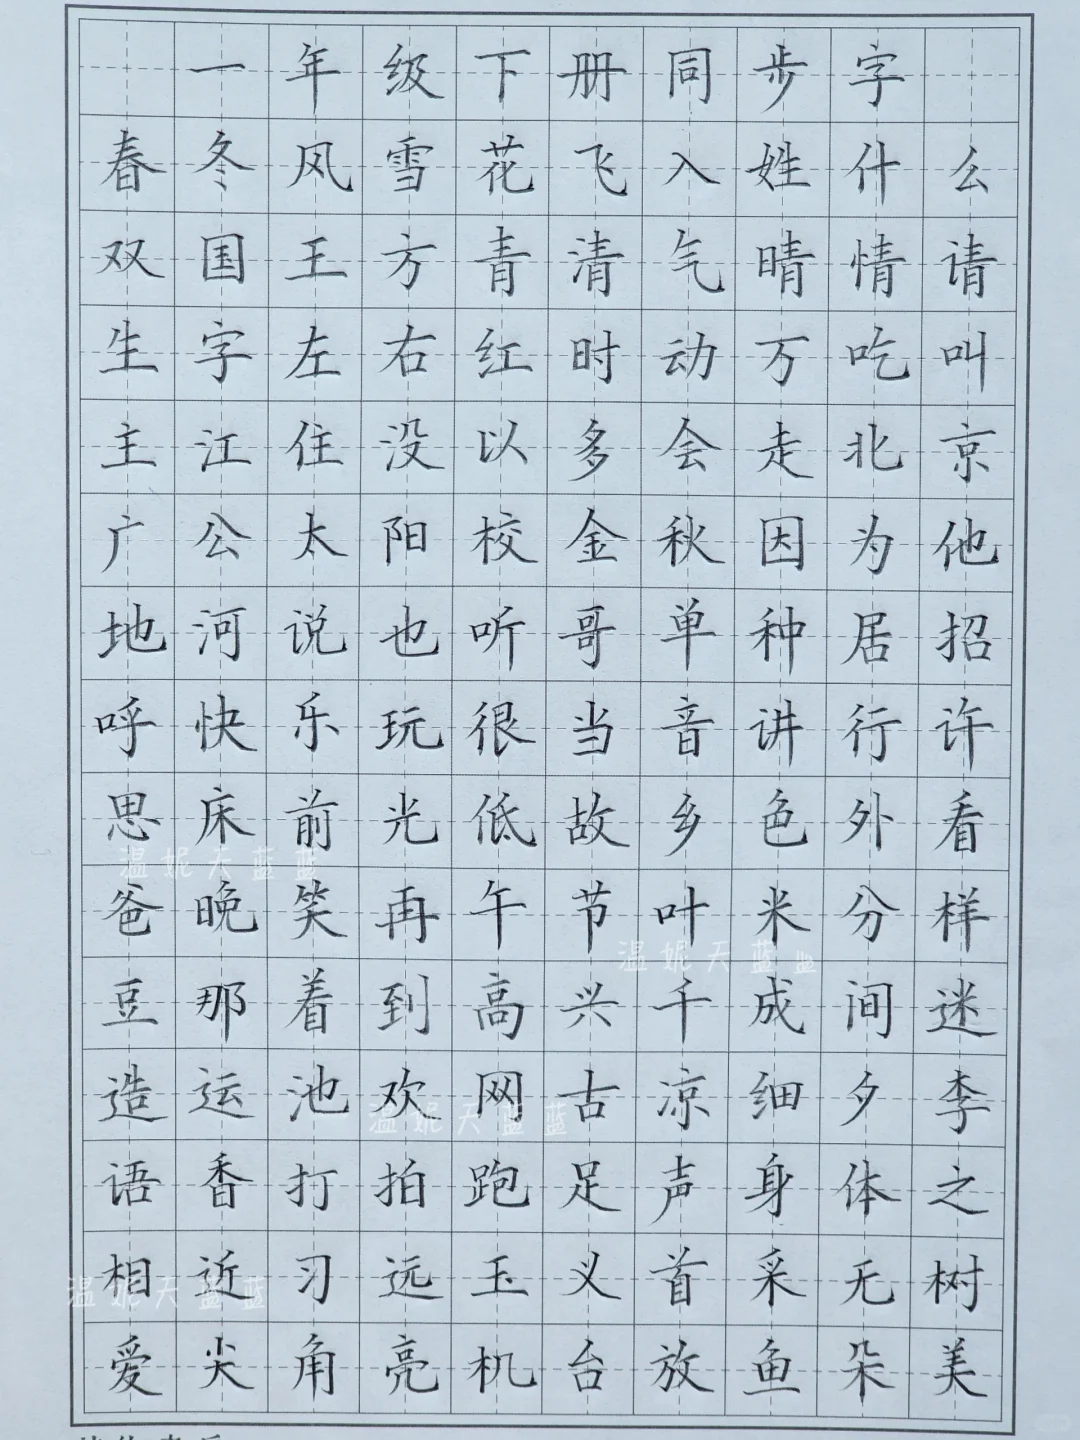 一年级下册同步字
春冬风雪花飞入姓什么
双国王方青清气晴情请
生字左右红时动万吃叫
主江住没以多会走北京
广公太阳校金秋因为他
地河说也听哥单种居招
呼快乐玩很当音讲行许
思床前光低故乡色外看
温妮天蓝蓝
爸晚笑再午节叶米分样
温妮天蓝蓝
豆那着到高兴千成间迷
造运池欢网古凉细夕李
温妮天蓝蓝
语香打拍跑足声身体之
相近习远玉义首采无树
温妮天蓝蓝
爱尖角亮机台放鱼朵美